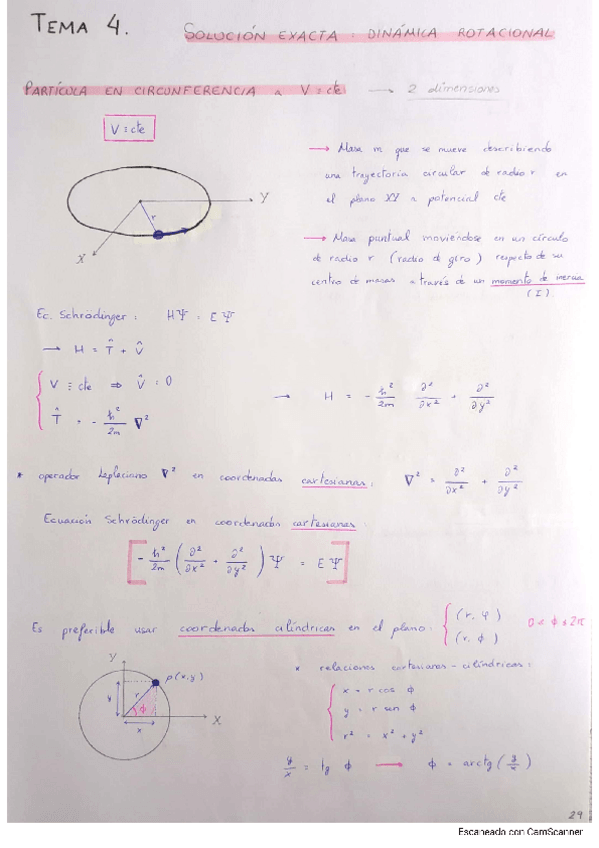 TEMA 4. SOLUCIÓN EXACTA : DINÁMICA ROTACIONAL
PARTÍCULA EN CIRCUNFERENCIA a V = cte → 2 dimensiones
V ≡ cte
→ Masa m que se mueve describiendo
una trayectoria circular de radio r en
el plano XY a potencial cte
Y
r
X
→ Masa puntual moviéndose en un círculo
de radio r (radio de giro) respecto de su
centro de masas a través de un momento de inercia
(I).
Ec. Schrödinger : HΨ = EΨ
→ H = T̂ + V̂
V ≡ cte ⇒ V̂ = 0
T̂ = - ħ²/2m ∇²
→ H = - ħ²/2m ∂²/∂x² + ∂²/∂y²
* operador Laplaciano ∇² en coordenadas cartesianas : ∇² = ∂²/∂x² + ∂²/∂y²
Ecuación Schrödinger en coordenadas cartesianas
[ - ħ²/2m ( ∂²/∂x² + ∂²/∂y² ) Ψ = EΨ ]
Es preferible usar coordenadas cilíndricas en el plano : { (r, φ) (r, ϕ) 0 < ϕ ≤ 2π
Y
P(x,y)
y
r
ϕ
x
X
* relaciones cartesianas - cilíndricas :
x = r cos ϕ
y = r sen ϕ
r² = x² + y²
y/x = tg ϕ → ϕ = arctg (y/x)
29
Escaneado con CamScanner